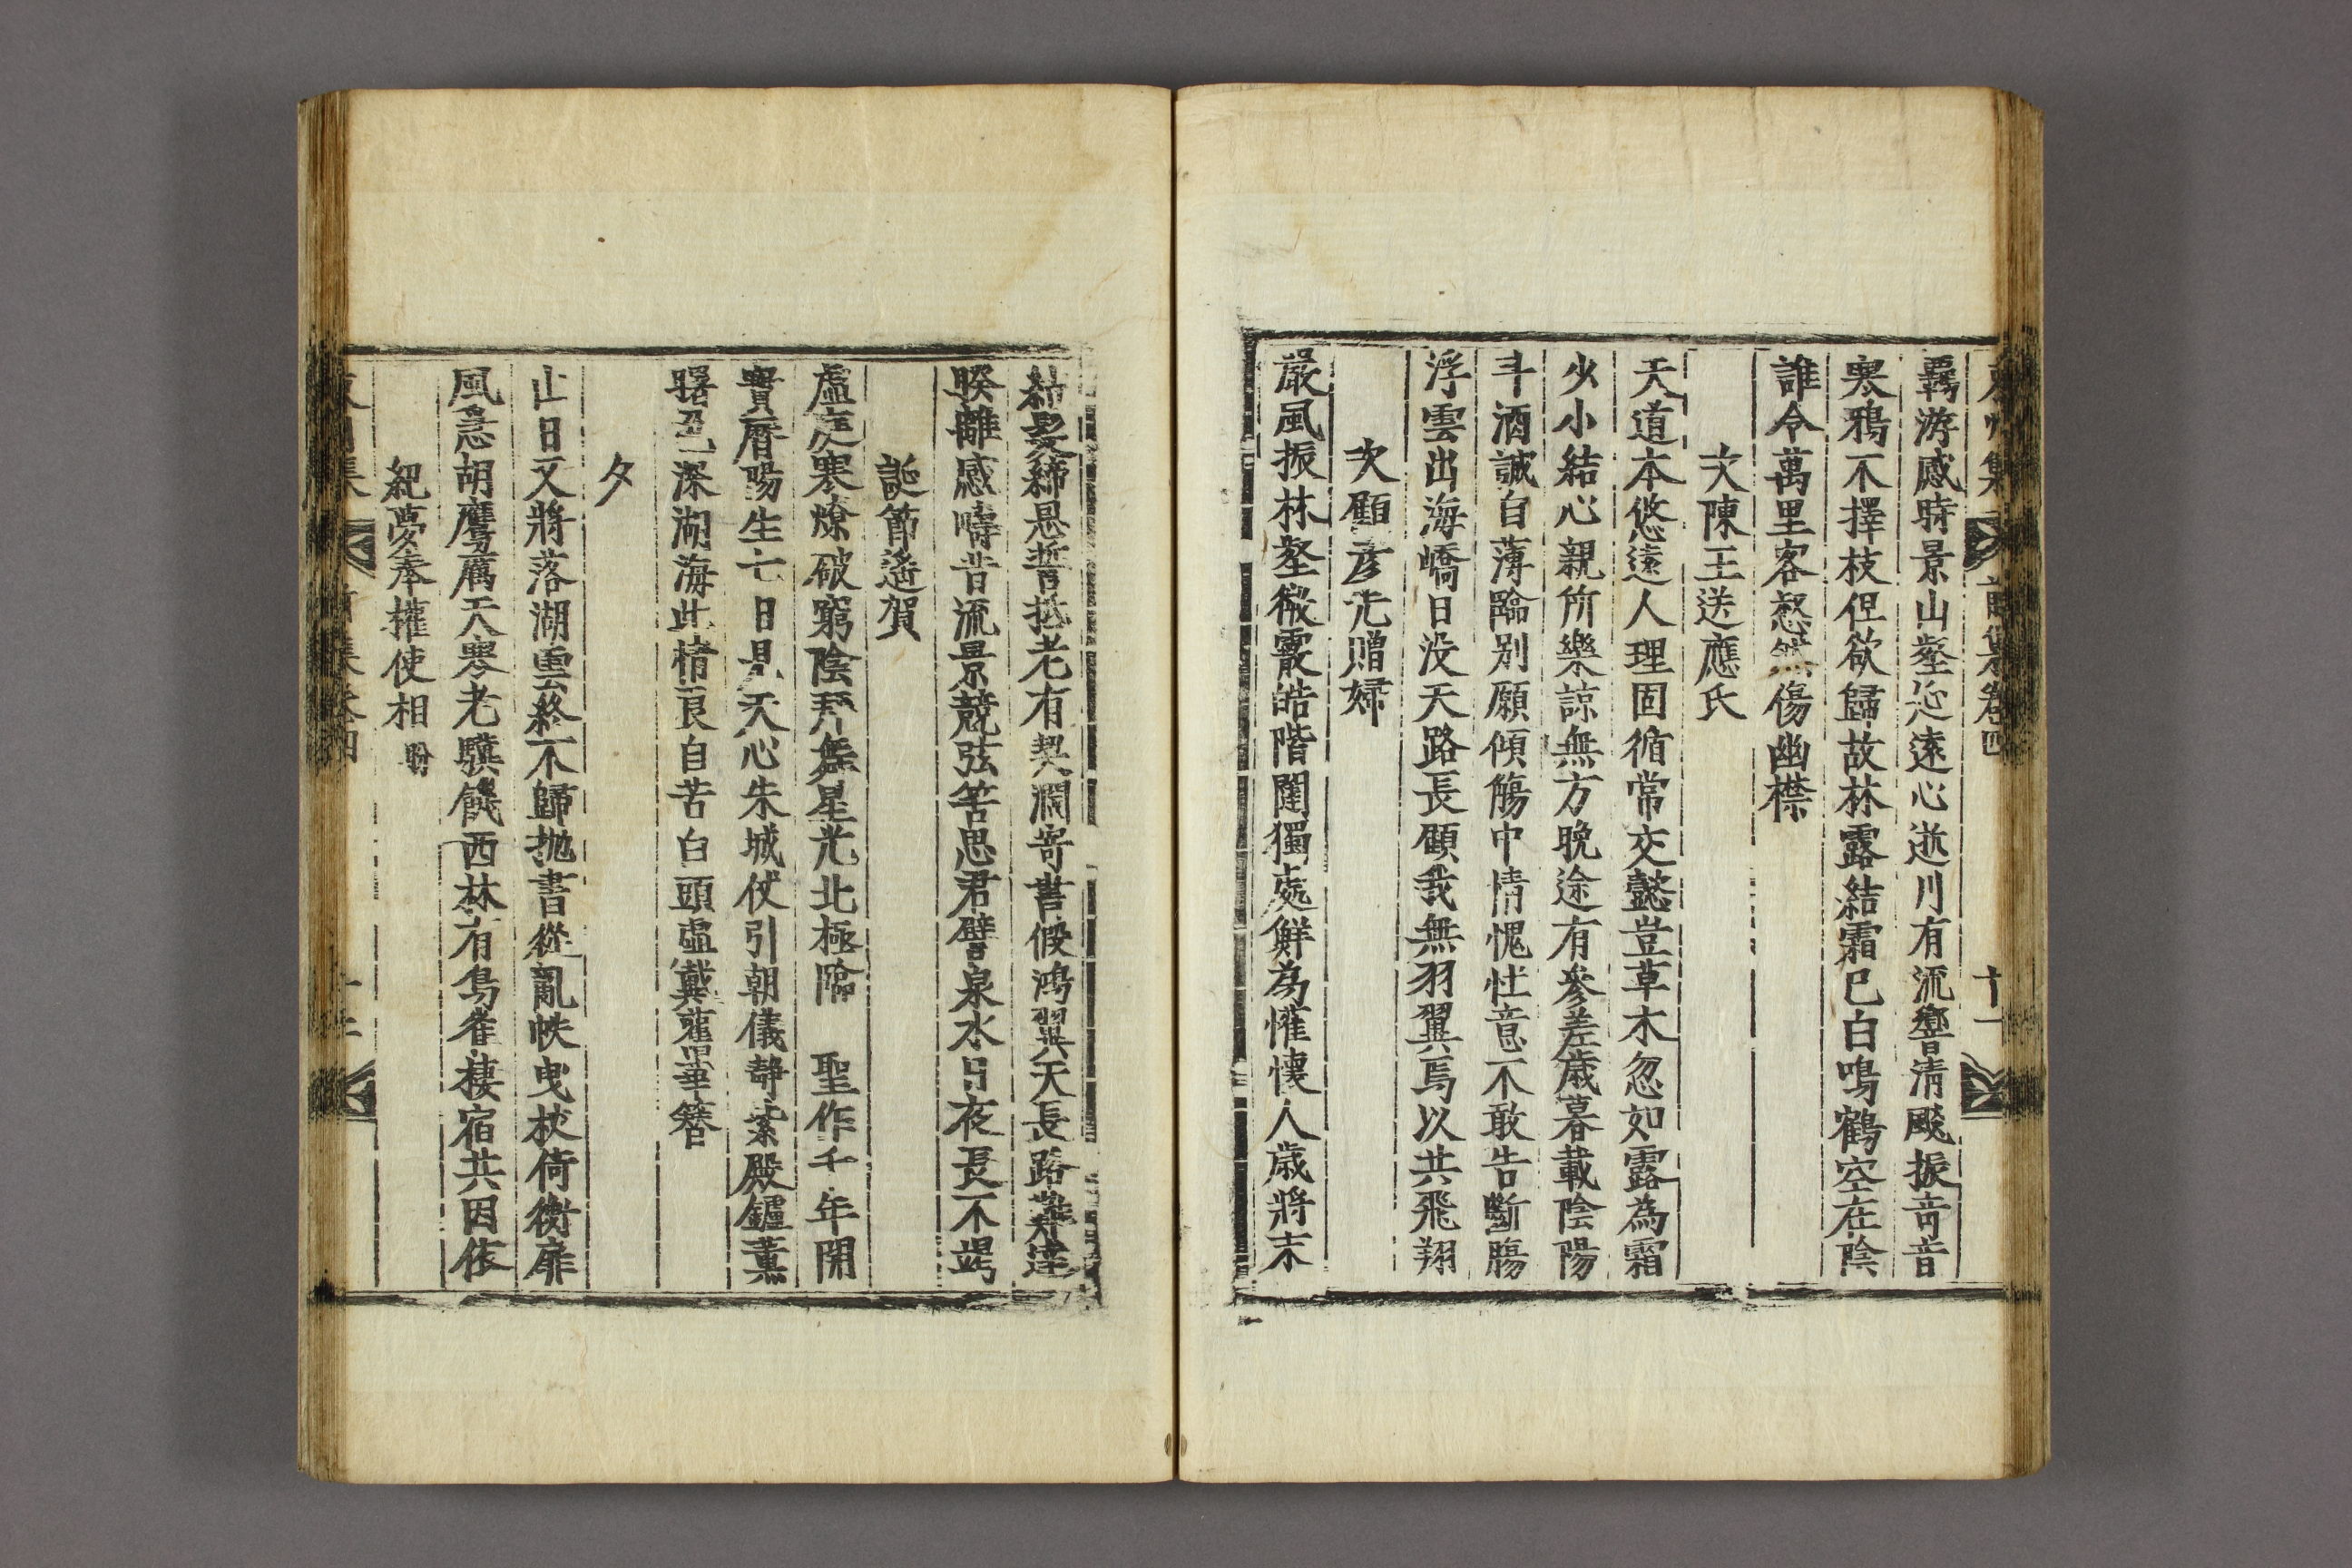 東州集 前集卷四 十一
羇游感時景山壑迯遠心逝川有流響淸飈振奇音
寒鴉不擇枝但欲歸故林露結霜已白鳴鶴空在陰
誰令萬里客愁然傷幽襟
次陳王送應氏
天道本悠遠人理固循常交懿豈草木忽如露為霜
少小結心親所樂諒無方晩途有參差歲暮載陰陽
斗酒誠自薄臨別願傾觴中情愧怯意不敢告斷膓
浮雲出海嶠日没天路長顧我無羽翼焉以共飛翔
次顧彦先贈婦
嚴風振林壑微霰皓階闥獨處鮮為懽懷人歲將末
結髮締恩誓抵老有契濶寄書假鴻翼天長路幷達
睽離感疇昔流景競弦筈思君譬泉水日夜長不竭
誕節遙賀
虛庭寒燎破窮陰拜舞星光北極臨 聖作千年開
寶曆陽生七日見天心朱城仗引朝儀靜紫殿鑪薰
曙色深湖海此情良自苦白頭虛戴舊畢簪
夕
止日又將落湖雲終不歸抛書從亂帙曳杖倚衡扉
風急胡鷹厲天寒老驥饑西林有鳥雀棲宿共因依
紀夢奉權使相 盼
集 前集卷四